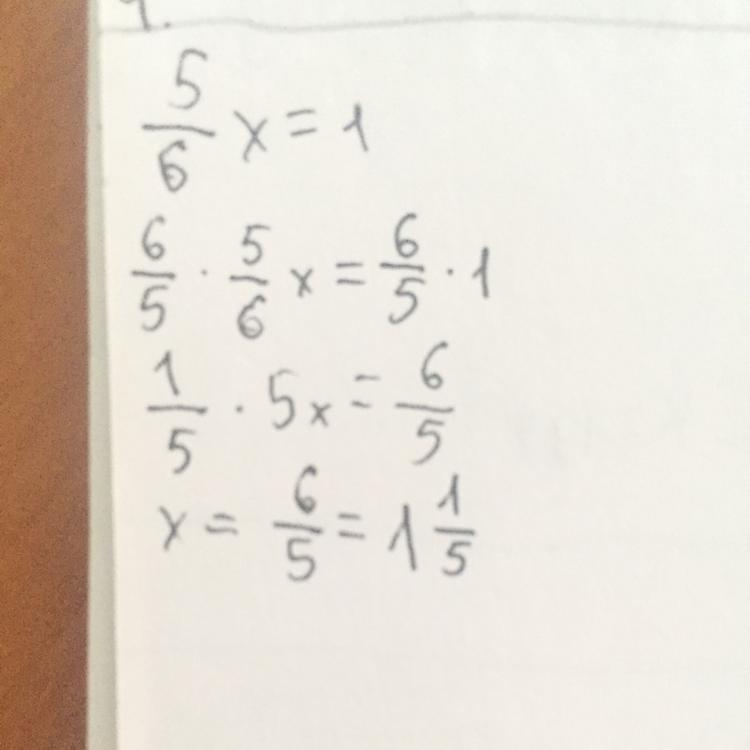 5/6 x = 1
6/5 · 5/6 x = 6/5 · 1
1/5 · 5x = 6/5
x = 6/5 = 1 1/5